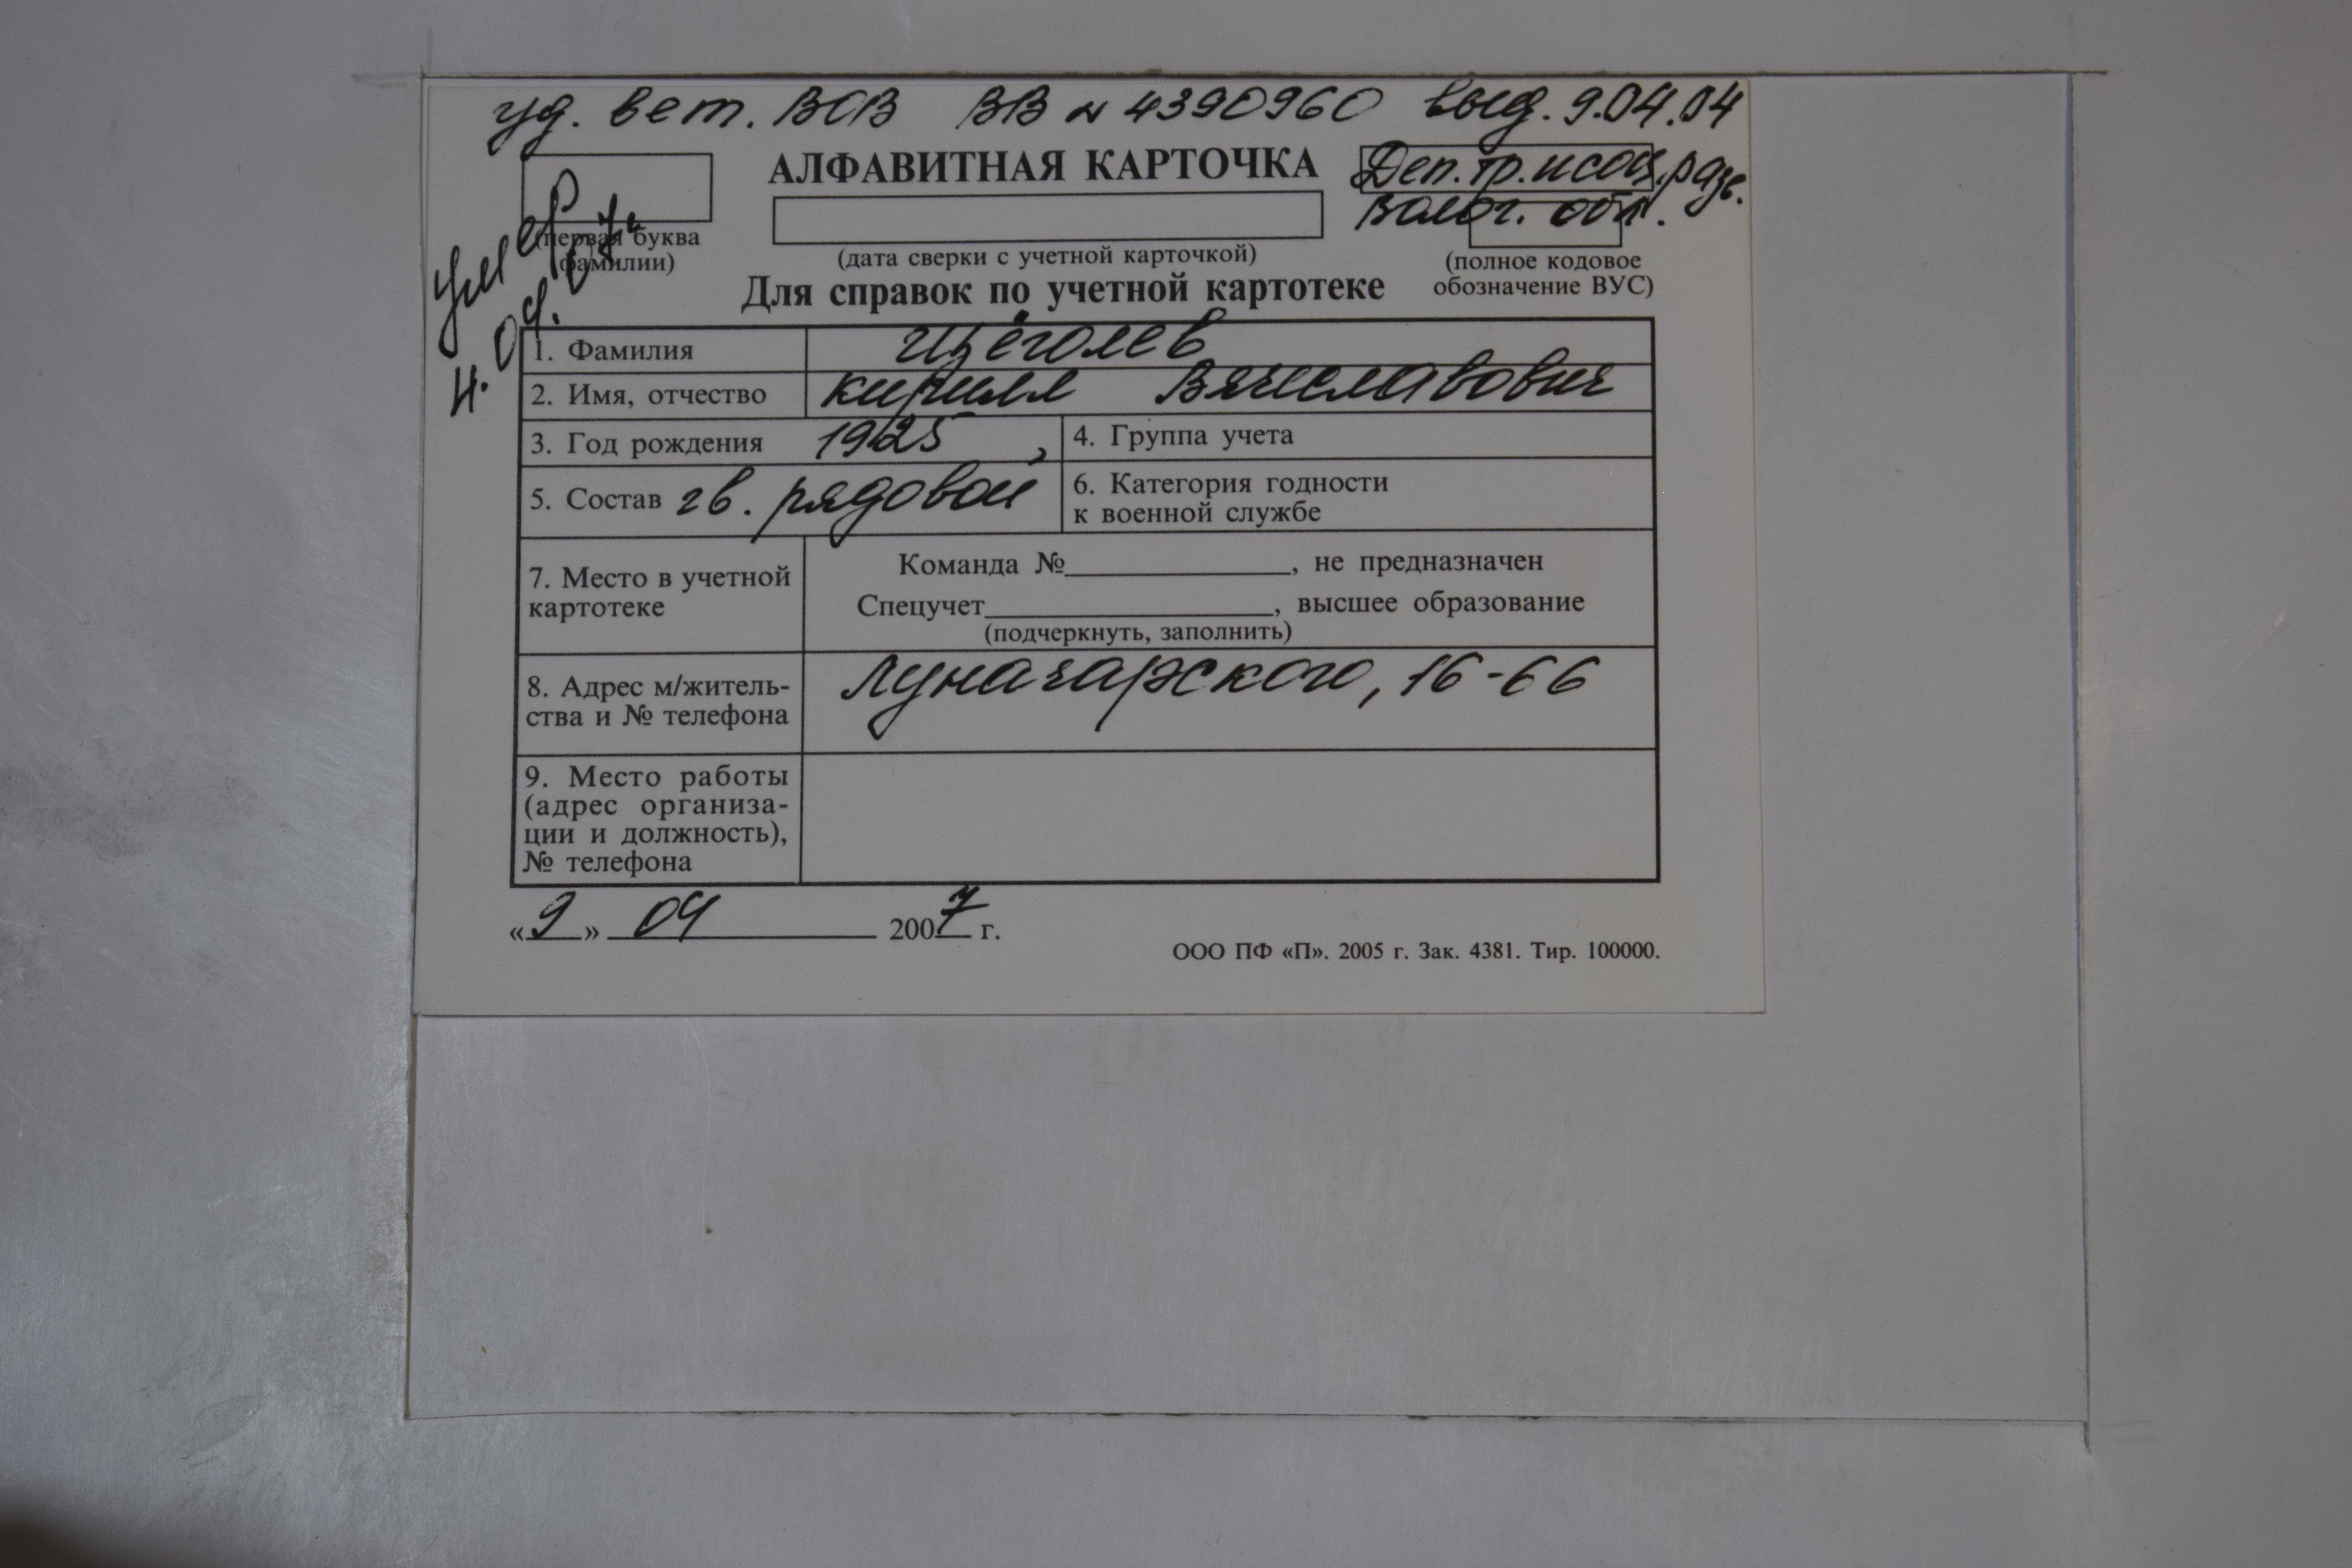 уд. вет. ВОВ ВВ № 4390960 выд. 9.04.04
АЛФАВИТНАЯ КАРТОЧКА
Деп. тр. и соц. разв.
Волог. обл.
умер
(первая буква
фамилии)
(дата сверки с учетной карточкой)
(полное кодовое
обозначение ВУС)
Для справок по учетной картотеке
1. Фамилия Щёголев
2. Имя, отчество Кирилл Вячеславович
3. Год рождения 1925 4. Группа учета
5. Состав гв. рядовой 6. Категория годности
к военной службе
7. Место в учетной
картотеке
Команда №__________, не предназначен
Спецучет__________, высшее образование
(подчеркнуть, заполнить)
8. Адрес м/житель-
ства и № телефона
Луначарского, 16-66
9. Место работы
(адрес организа-
ции и должность),
№ телефона
«9» 04 2007 г.
ООО ПФ «П». 2005 г. Зак. 4381. Тир. 100000.